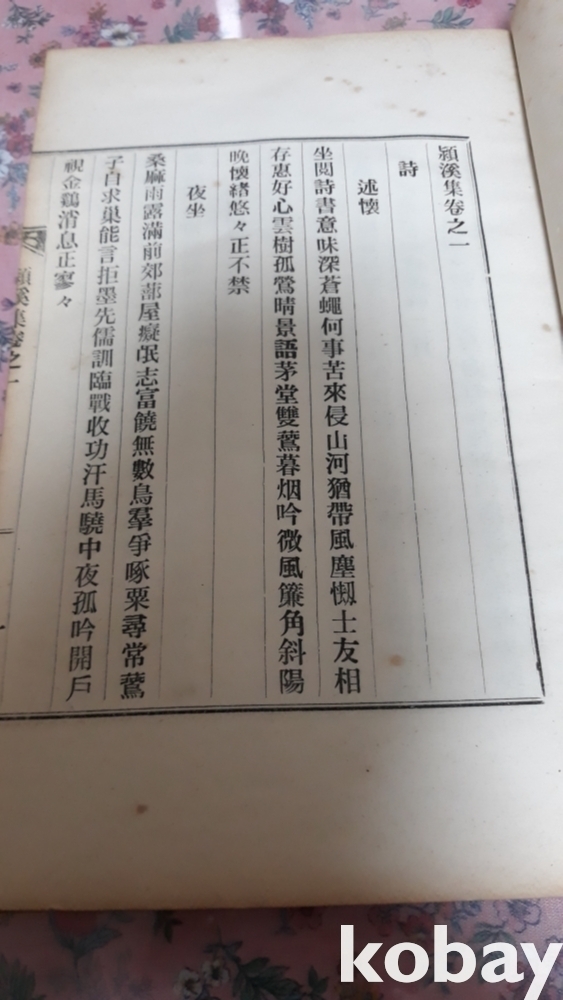 潁溪集卷之一
詩
述懷
坐閱詩書意味深蒼蠅何事苦來侵山河猶帶風塵惻士友相
存惠好心雲樹孤鶯晴景語茅堂雙鷰暮烟吟微風簾角斜陽
晩懷緖悠々正不禁
夜坐
桑麻雨露滿前郊蔀屋癡氓志富饒無數鳥羣爭啄粟尋常鷰
子自求巢能言拒墨先儒訓臨戰收功汗馬驍中夜孤吟開戶
視金鷄消息正寥々
潁溪集卷之一
kobay